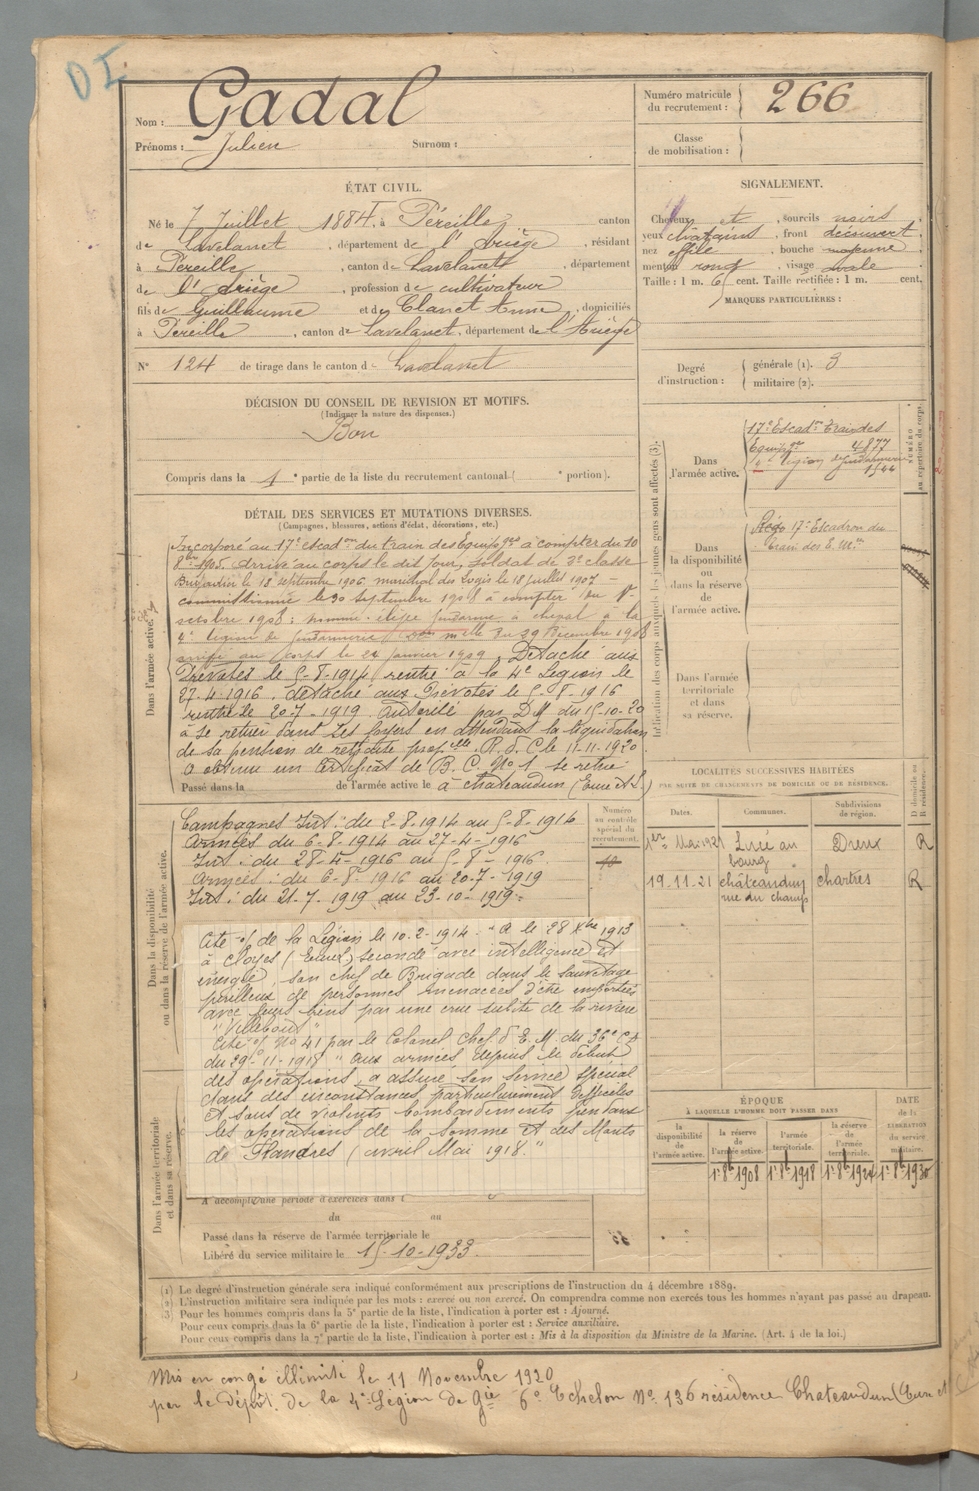 DI
Nom : Gadal
Prénoms : Julien Surnom :
Numéro matricule du recrutement : 266
Classe de mobilisation :
ÉTAT CIVIL.
Né le 7 Juillet 1884, à Péreille, canton
de Lavelanet, département de l'Ariège, résidant
à Péreille, canton de Lavelanet, département
de l'Ariège, profession de cultivateur
fils de Guillaume et de Clanet Anne, domiciliés
à Péreille, canton de Lavelanet, département de l'Ariège
N° 124 de tirage dans le canton de Lavelanet
SIGNALEMENT.
Cheveux et , sourcils noirs
yeux châtains, front découvert
nez effilé, bouche moyenne
menton rond, visage ovale
Taille : 1 m. 61 cent. Taille rectifiée : 1 m. cent.
MARQUES PARTICULIÈRES :
Degré d'instruction : générale (1). 3
militaire (2).
DÉCISION DU CONSEIL DE REVISION ET MOTIFS.
(Indiquer la nature des dispenses.)
Bon
Compris dans la 1e partie de la liste du recrutement cantonal ( e portion).
DÉTAIL DES SERVICES ET MUTATIONS DIVERSES.
(Campagnes, blessures, actions d'éclat, décorations, etc.)
Dans l'armée active.
Incorporé au 17e escadon du train des Equipages à compter du 10
8bre 1905. Arrivé au corps le dit jour, soldat de 2e classe
Brigadier le 18 septembre 1906 maréchal des logis le 18 juillet 1907 –
commissionné le 30 septembre 1908 à compter du 1er
octobre 1908 ; nommé élève gendarme à cheval à la
4e légion de gendarmerie du 29 Décembre 1908
arrivé au corps le 24 janvier 1909. Détaché aux
Prévôtés le 5-8-1914 rentré à la 4e Légion le
27-4-1916. détaché aux Prévôtés le 5-8-1916
rentré le 20-7-1919. Autorisé par DM du 15-10-20
à se retirer dans ses foyers en attendant la liquidation
de sa pension de retraite propelle. R. d. C le 11-11-1920
a obtenu un Certificat de B. C. No 1 se retire
Passé dans la de l'armée active le à chateaudun (Eure et L)
Indication des corps auxquels les jeunes gens sont affectés (3).
Dans l'armée active. 17e Escadn Train des
Equipges 4877
4e légion de gendarmerie
1544
Dans la disponibilité ou dans la réserve de l'armée active. 17e Escadron du
Train des E. Mres
Dans l'armée territoriale et dans sa réserve.
NUMÉRO au répertoire du corps.
Dans la disponibilité ou dans la réserve de l'armée active.
Campagnes Int : du 2-8-1914 au 5-8-1914
Armées du 6-8-1914 au 27-4-1916
Int : du 28-4-1916 au 5-8-1916.
Armées : du 6-8-1916 au 20-7-1919
Int : du 21-7-1919 au 23-10-1919.
Numéro au contrôle spécial du recrutement.
Cité o/ de la Légion le 10-2-1914 - " A le 28 Xbre 1913
à Cloyes (Eure-L) secondé avec intelligence et
énergie, son chef de Brigade dans le sauvetage
périlleux de personnes menacées d'être emportées
avec leurs biens par une crue subite de la rivière
Cité o/ No 41 par le Colonel Chef d'E. M. du 36e C.A
du 29-11-1918 " Aux armées depuis le début
des opérations, a assuré son service spécial
dans des circonstances particulièrement difficiles
et sous de violents bombardements pendant
les opérations de la Somme et des Monts
de Flandres (avril Mai 1918."
Dans l'armée territoriale et dans sa réserve.
A accompli une période d'exercices dans l
du au
Passé dans la réserve de l'armée territoriale le
Libéré du service militaire le 15-10-1933.
LOCALITÉS SUCCESSIVES HABITÉES
PAR SUITE DE CHANGEMENTS DE DOMICILE OU DE RÉSIDENCE.
Dates. Communes. Subdivisions de région. D domicile ou R résidence.
1er Mai 1921 Lué au bourg Dreux R
19-11-21 châteaudun rue du champs chartres R
ÉPOQUE
À LAQUELLE L'HOMME DOIT PASSER DANS
DATE de la LIBÉRATION du service militaire.
la disponibilité de l'armée active. la réserve de l'armée active. l'armée territoriale. la réserve de l'armée territoriale.
1er 8b 1908 1er 8b 1918 1er 8b 1924 1er 8b 1930
(1) Le degré d'instruction générale sera indiqué conformément aux prescriptions de l'instruction du 4 décembre 1889.
(2) L'instruction militaire sera indiquée par les mots : exercé ou non exercé. On comprendra comme non exercés tous les hommes n'ayant pas passé au drapeau.
(3) Pour les hommes compris dans la 5e partie de la liste, l'indication à porter est : Ajourné.
Pour ceux compris dans la 6e partie de la liste, l'indication à porter est : Service auxiliaire.
Pour ceux compris dans la 7e partie de la liste, l'indication à porter est : Mis à la disposition du Ministre de la Marine. (Art. 4 de la loi.)
Mis en congé illimité le 11 Novembre 1920
par le dépôt de la 4e Légion de Gie 6e Echelon No 136 résidence Chateaudun (Eure et